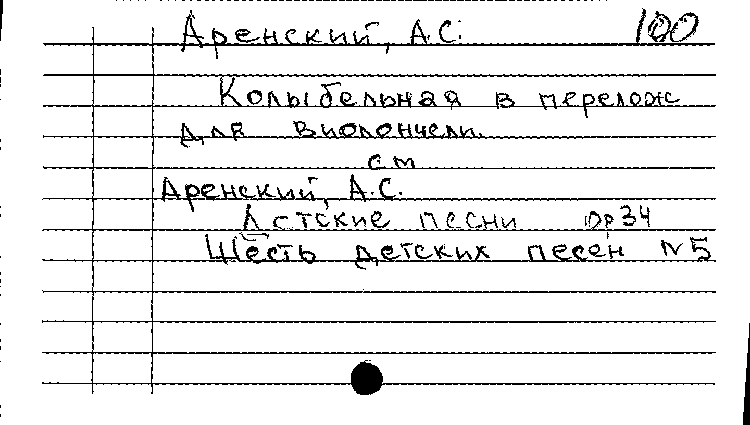 Аренский, А.С. 100
Колыбельная в перелож
для виолончели.
см
Аренский, А.С.
Детские песни op 34
Шесть детских песен №5